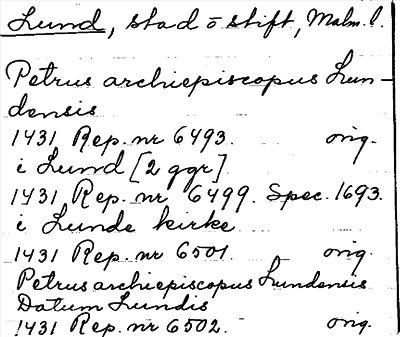 Lund, stad o stift, Malm. l.
Petrus archiepiscopus Lun-
densis
1431 Rep. nr 6493. orig.
i Lund [2 ggr]
1431 Rep. nr 6499. Spec. 1693.
i Lunde kirke
1431 Rep. nr 6501. orig.
Petrus archiepiscopus Lundensis
Datum Lundis
1431 Rep. nr 6502. orig.